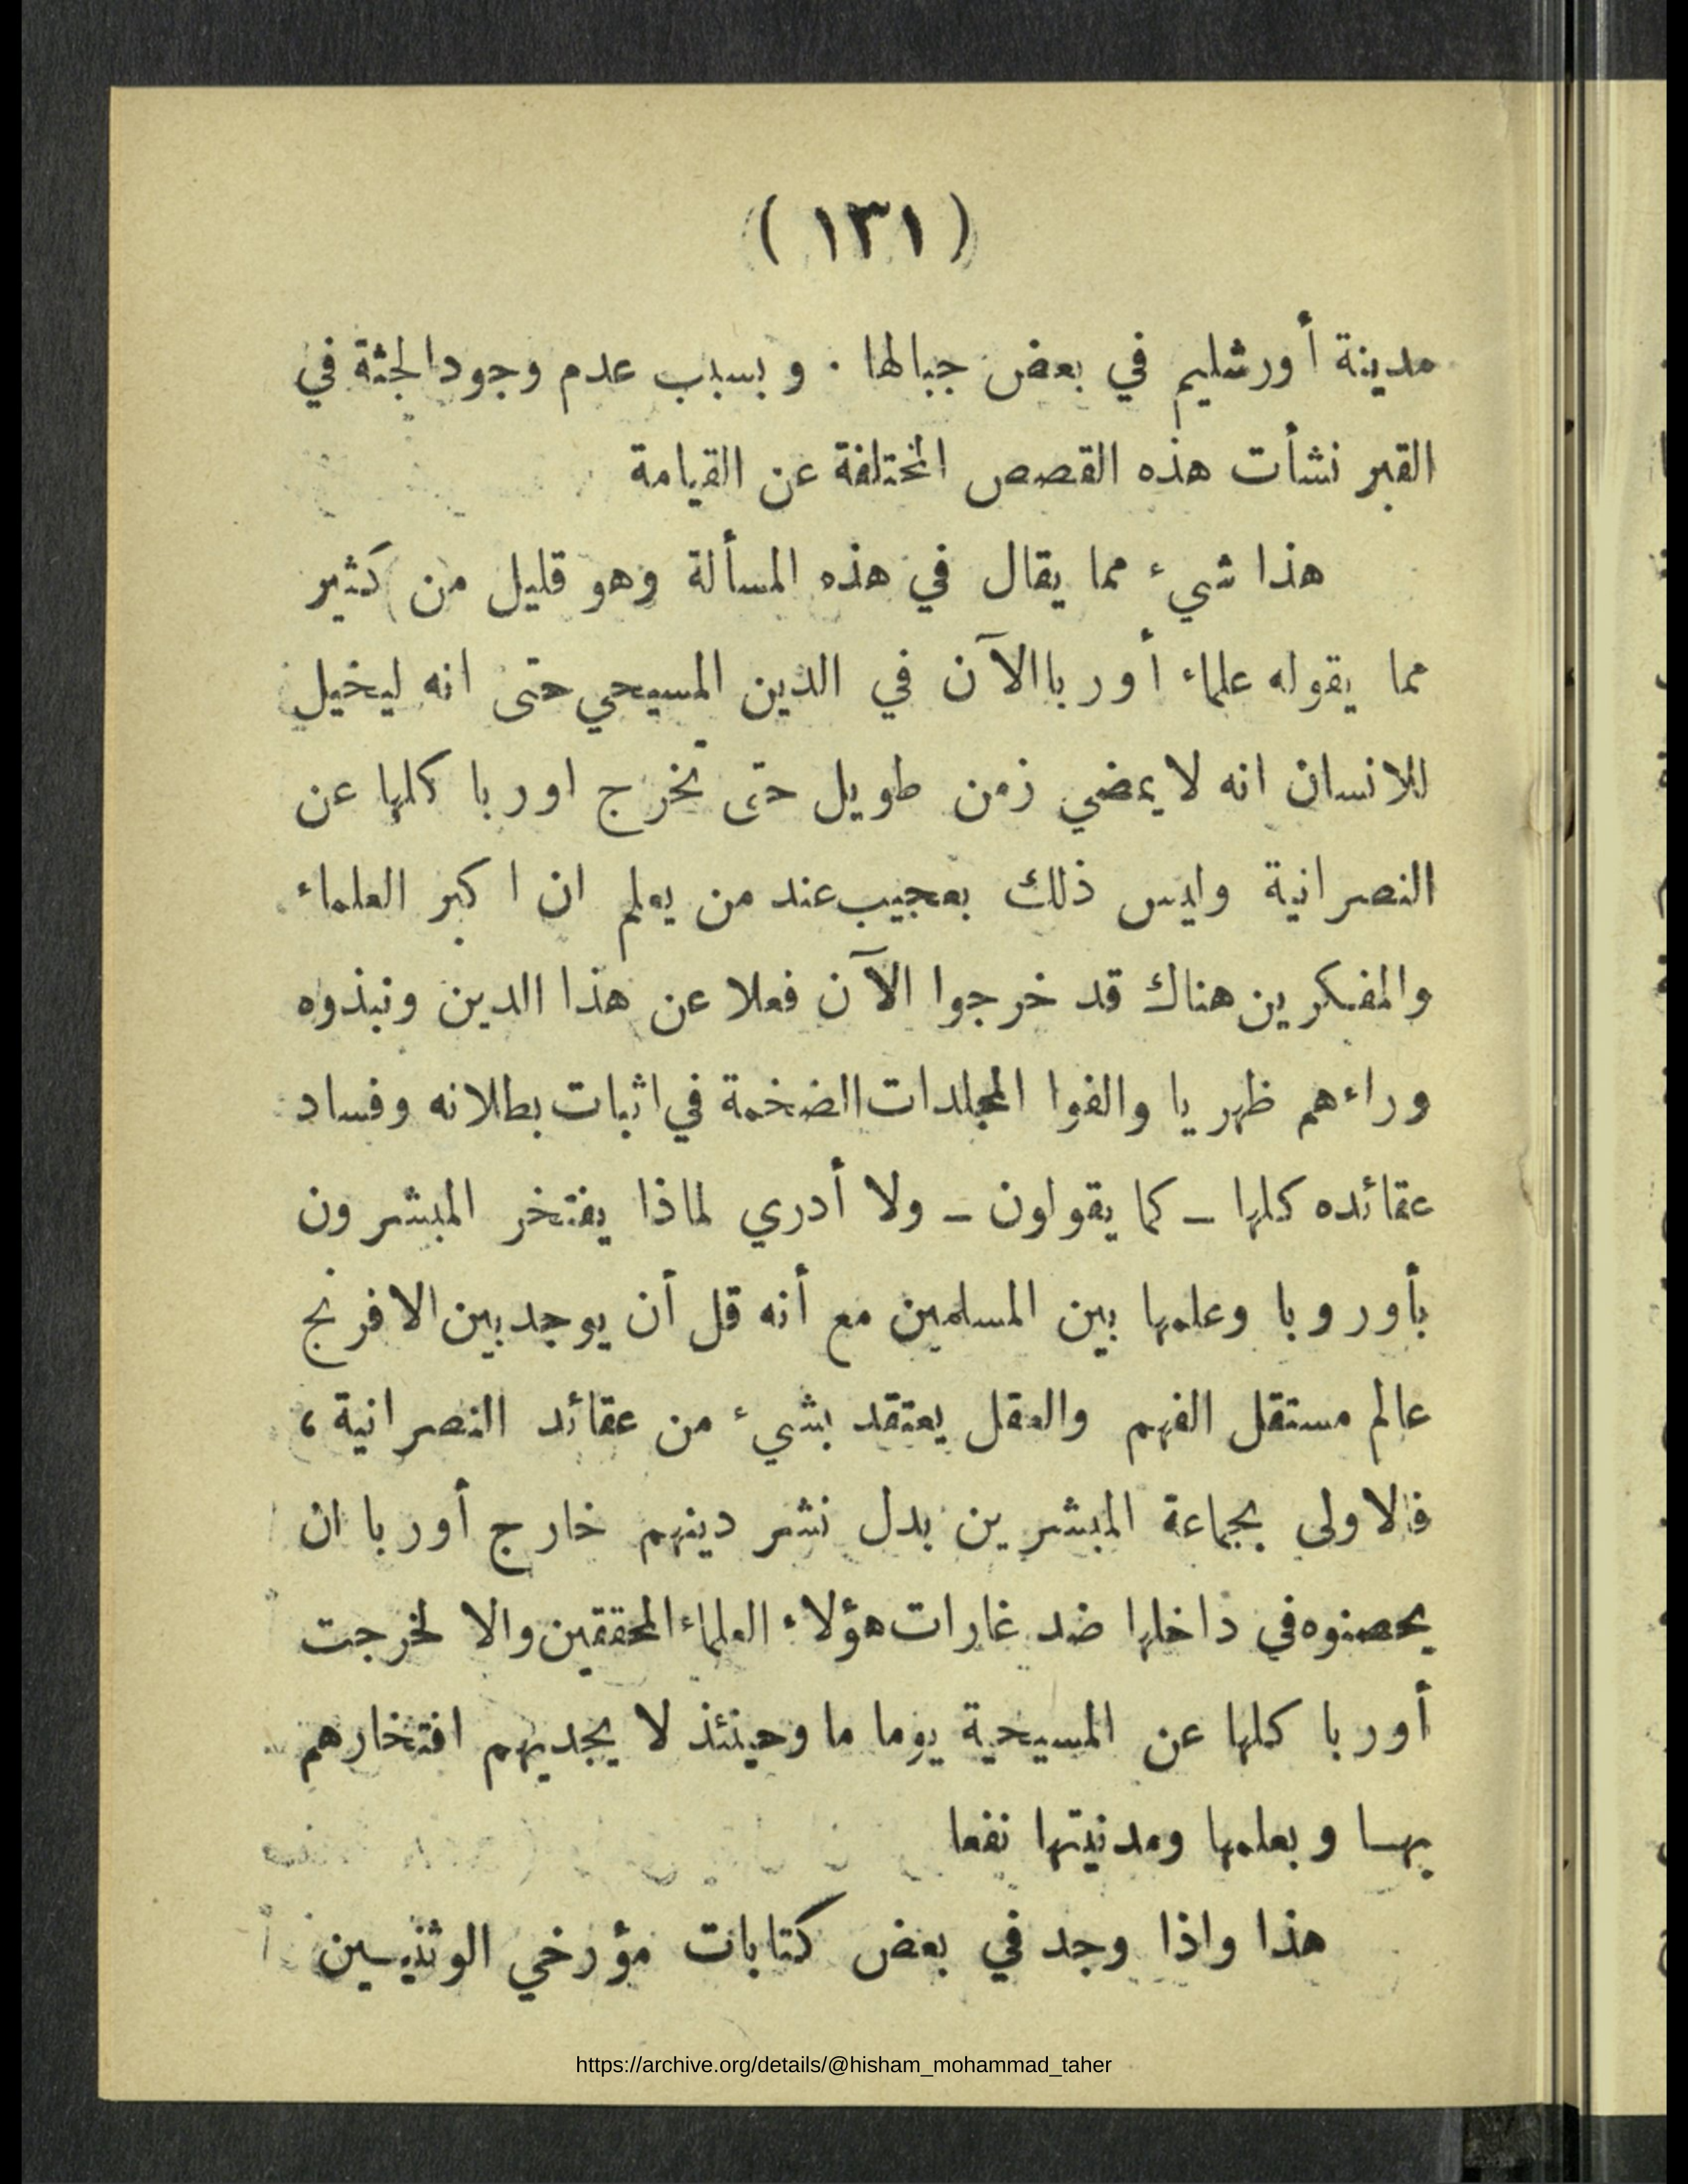 ( ١٣١ )
مدينة أورشليم في بعض جبالها . وبسبب عدم وجود الجثة في
القبر نشأت هذه القصص المختلفة عن القيامة
هذا شيء مما يقال في هذه المسألة وهو قليل من كثير
مما يقوله علماء أوربا الآن في الدين المسيحي حتى انه ليخيل
للانسان انه لا يمضي زمن طويل حتى تخرج اوربا كلها عن
النصرانية وليس ذلك بعجيب عند من يعلم ان اكبر العلماء
والمفكرين هناك قد خرجوا الآن فعلا عن هذا الدين ونبذوه
وراءهم ظهريا والفوا المجلدات الضخمة في اثبات بطلانه وفساد
عقائده كلها – كما يقولون – ولا أدري لماذا يفتخر المبشرون
بأوروبا وعلمها بين المسلمين مع أنه قل أن يوجد بين الافرنج
عالم مستقل الفهم والعقل يعتقد بشيء من عقائد النصرانية ،
فالاولى بجماعة المبشرين بدل نشر دينهم خارج أوربا ان
يحصنوه في داخلها ضد غارات هؤلاء العلماء المحققين والا لخرجت
أوربا كلها عن المسيحية يوما ما وحينئذ لا يجديهم افتخارهم
بها وبعلمها ومدنيتها نفعا
هذا واذا وجد في بعض كتابات مؤرخي الوثنيين
https://archive.org/details/@hisham_mohammad_taher